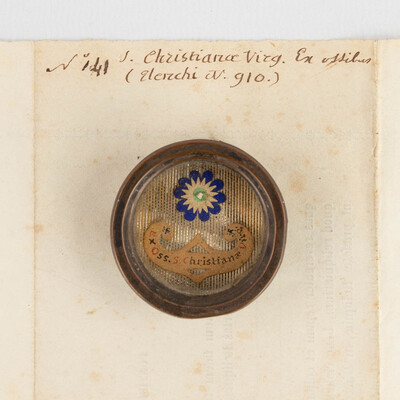 No 141 S. Christianæ Virg. Ex ossibus
(Elenchi N. 910.)
Ex Oss. S. Christianæ